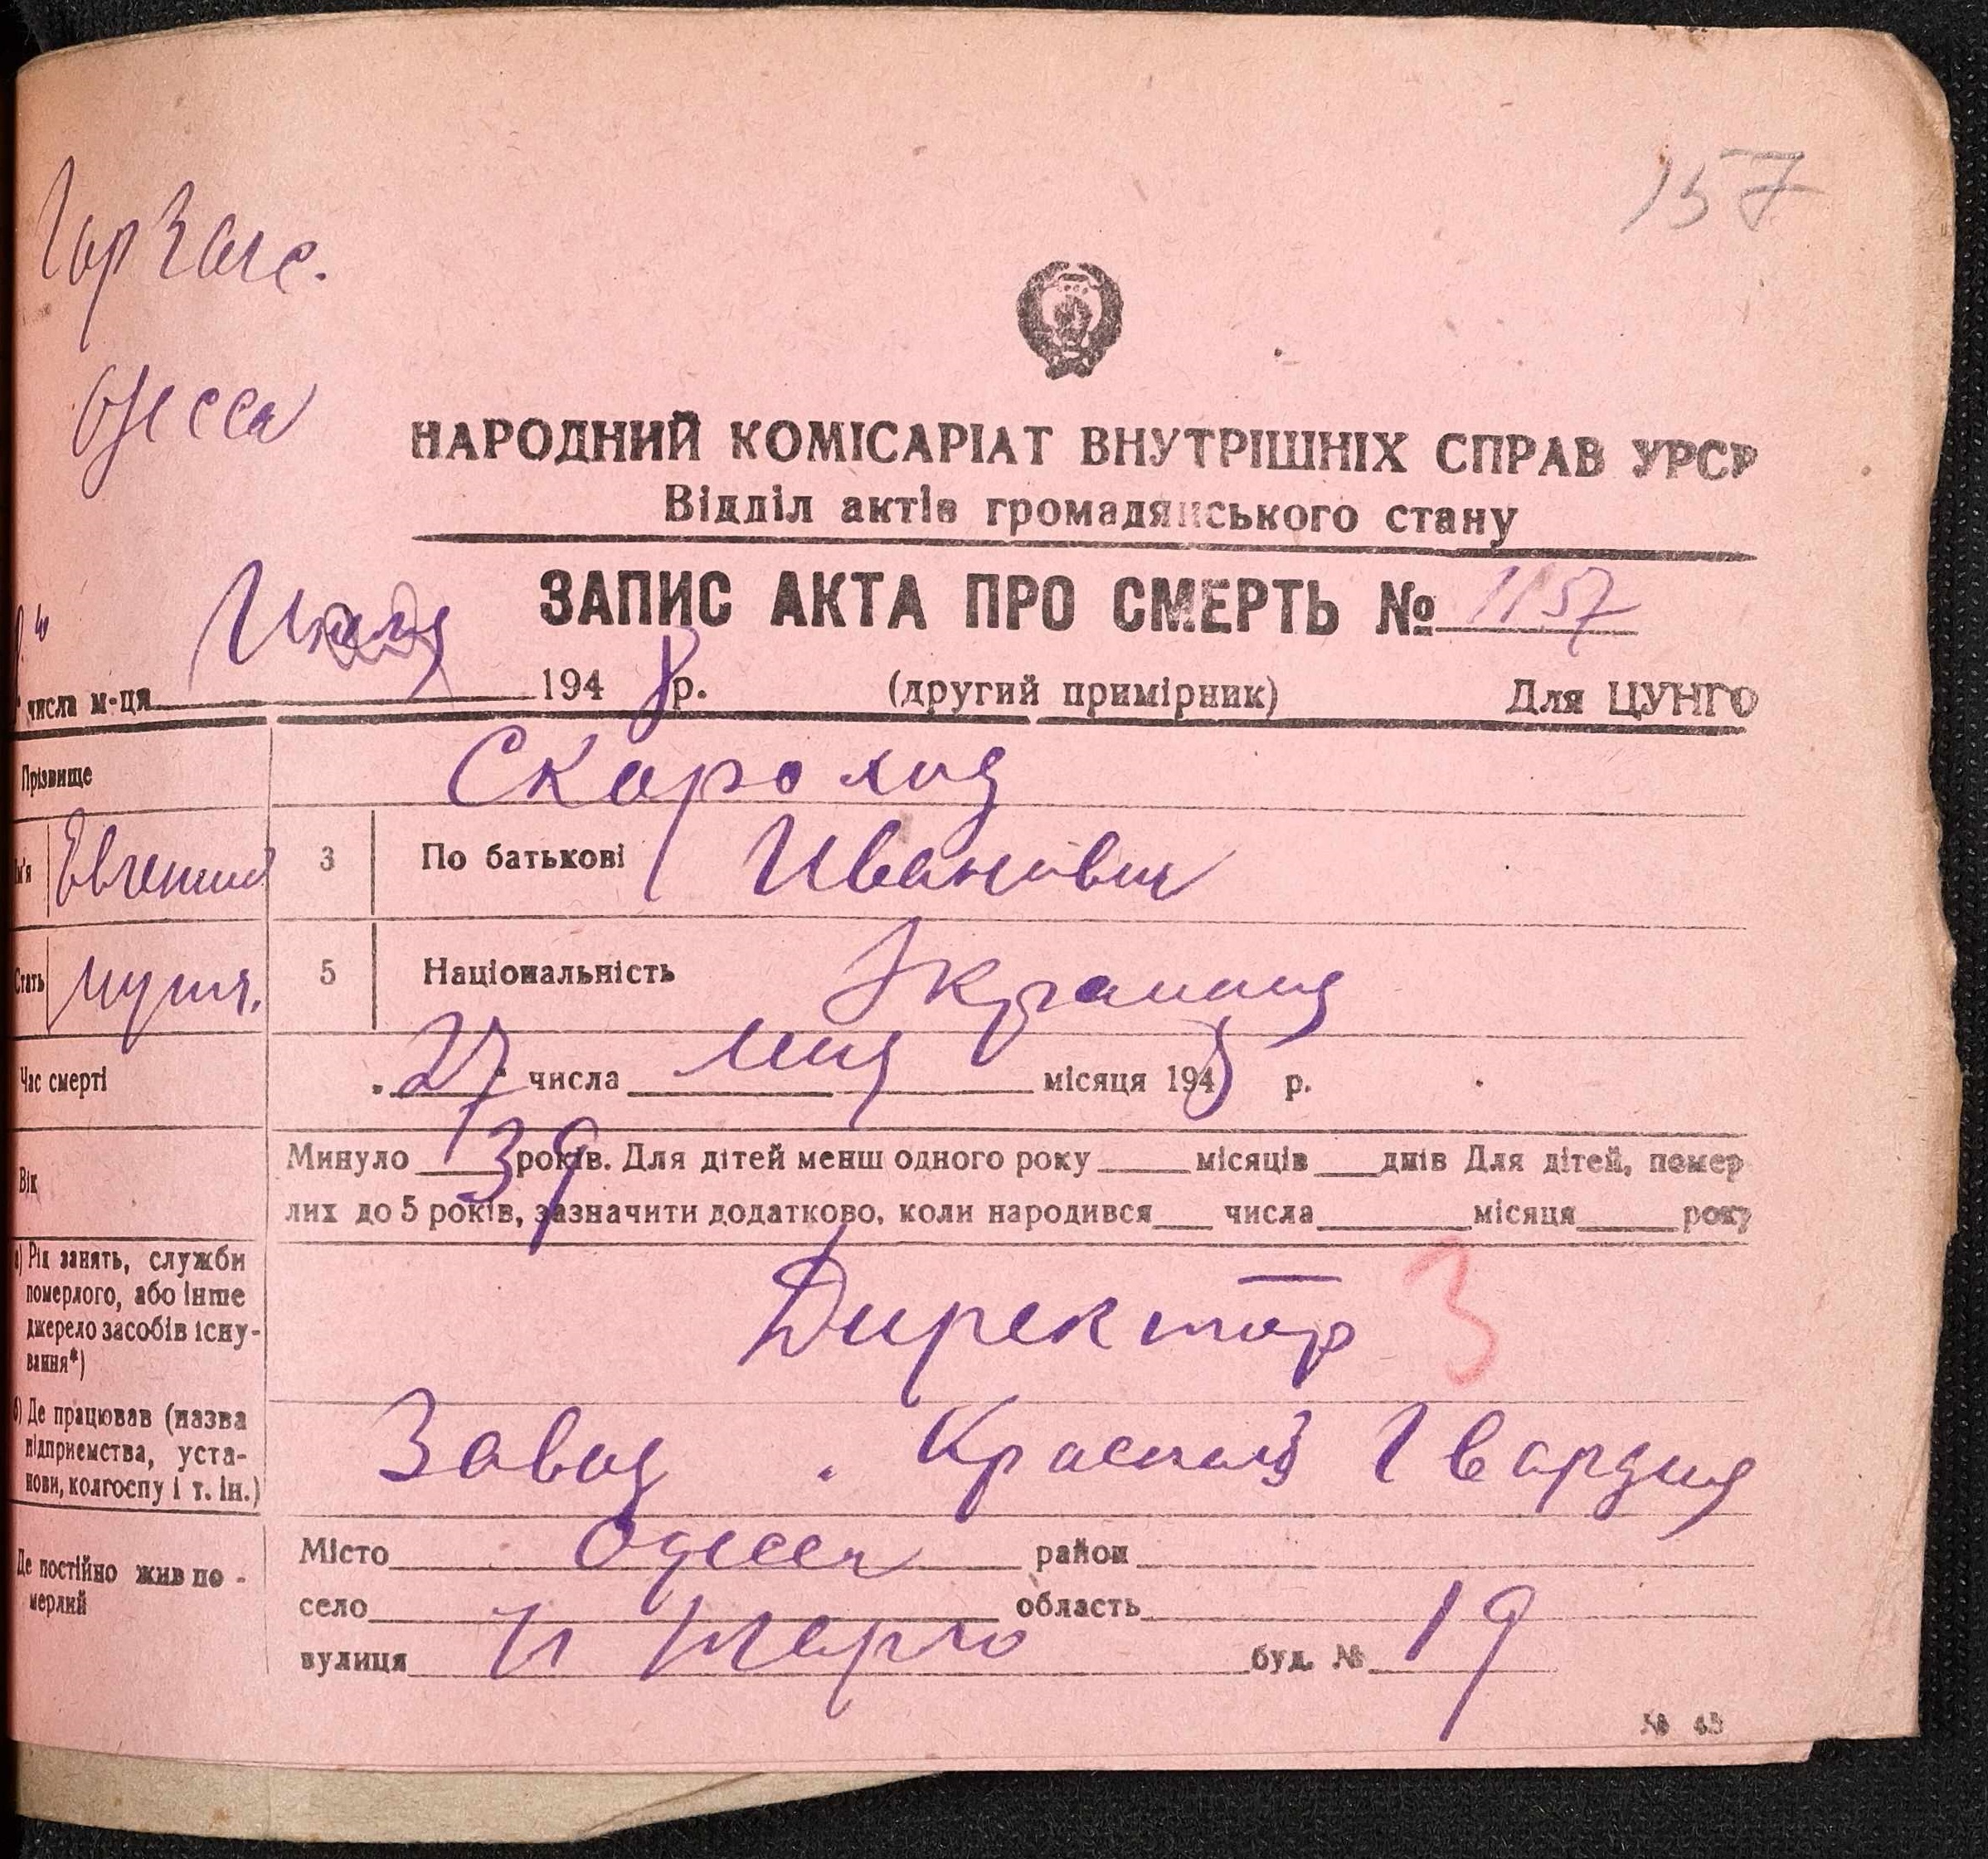 157
ГорЗагс.
Одесса
НАРОДНИЙ КОМІСАРІАТ ВНУТРІШНІХ СПРАВ УРСР
Відділ актів громадянського стану
ЗАПИС АКТА ПРО СМЕРТЬ № 1157
числа м-ця 194 р. (другий примірник) Для ЦУНГО
Прізвище Скороход
Ім'я Евгений 3 По батькові Иванович
Стать мужч. 5 Національність Украинец
Час смерті 27 числа мая місяця 194 р.
Вік Минуло 39 років. Для дітей менш одного року місяців днів Для дітей, помер
лих до 5 років, зазначити додатково, коли народився числа місяця року
а) Рід занять, служби
померлого, або інше
джерело засобів існу-
вання*)
Директор 3
б) Де працював (назва
підприємства, уста-
нови, колгоспу і т. ін.)
Завод. Красный Гвардия
Де постійно жив по-
мерлий
Місто Одесса район
село область
вулиця буд. № 19